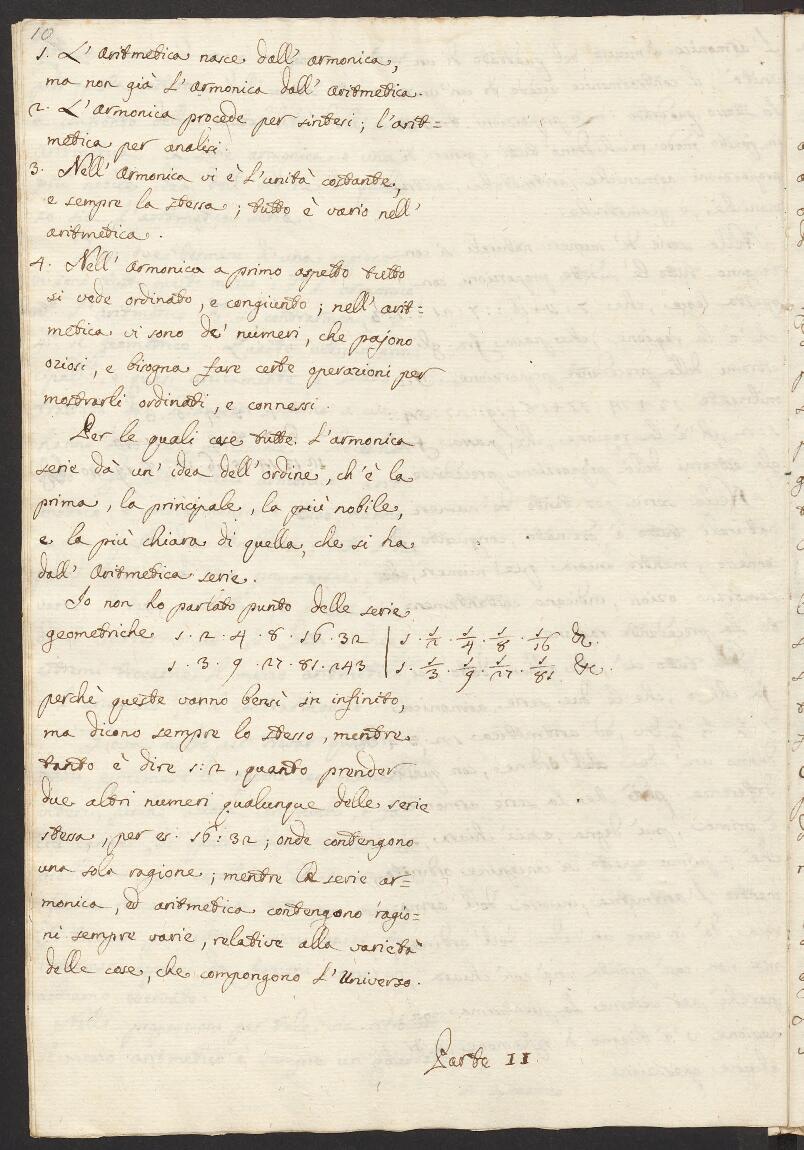 10
1. L'aritmetica nasce dall'armonica,
ma non già l'armonica dall'aritmetica.
2. L'armonica procede per sintesi; l'arit=
metica per analisi.
3. Nell'armonica vi è l'unità costante,
e sempre la stessa; tutto è vario nell'
aritmetica.
4. Nell'armonica a primo aspetto tutto
si vede ordinato, e congiunto; nell'arit=
metica vi sono de' numeri, che pajono
oziosi, e bisogna fare certe operazioni per
mostrarli ordinati, e connessi.
Per le quali cose tutte. L'armonica
serie dà un'idea dell'ordine, ch'è la
prima, la principale, la più nobile,
e la più chiara di quella, che si ha
dall'aritmetica serie.
Io non ho parlato punto delle serie
geometriche 1. 2. 4. 8. 16. 32 | 1. 1/2. 1/4. 1/8. 1/16 &c.
1. 3. 9. 27. 81. 243 | 1. 1/3. 1/9. 1/27. 1/81 &c.
perchè queste vanno bensì in infinito,
ma dicono sempre lo stesso, mentre
tanto è dire 1:2, quanto prender
due altri numeri qualunque delle serie
stessa, per es. 16:32; onde contengono
una sola ragione; mentre la serie ar=
monica, ed aritmetica contengono ragio=
ni sempre varie, relative alla varietà
delle cose, che compongono l'Universo.
Parte II.